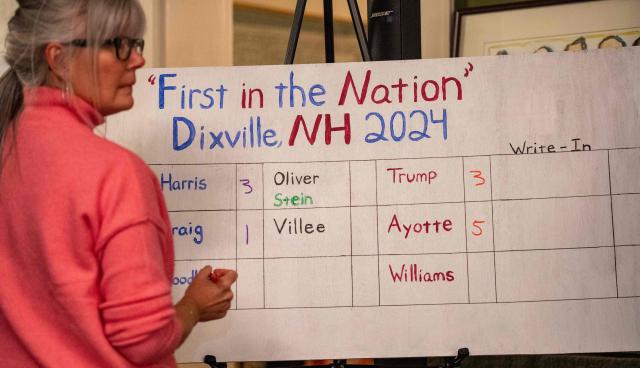 BOSE
"First in the Nation"
Dixville, NH 2024
Write-In
Harris 3 Oliver Trump 3
Stein
raig 1 Villee Ayotte 5
Williams